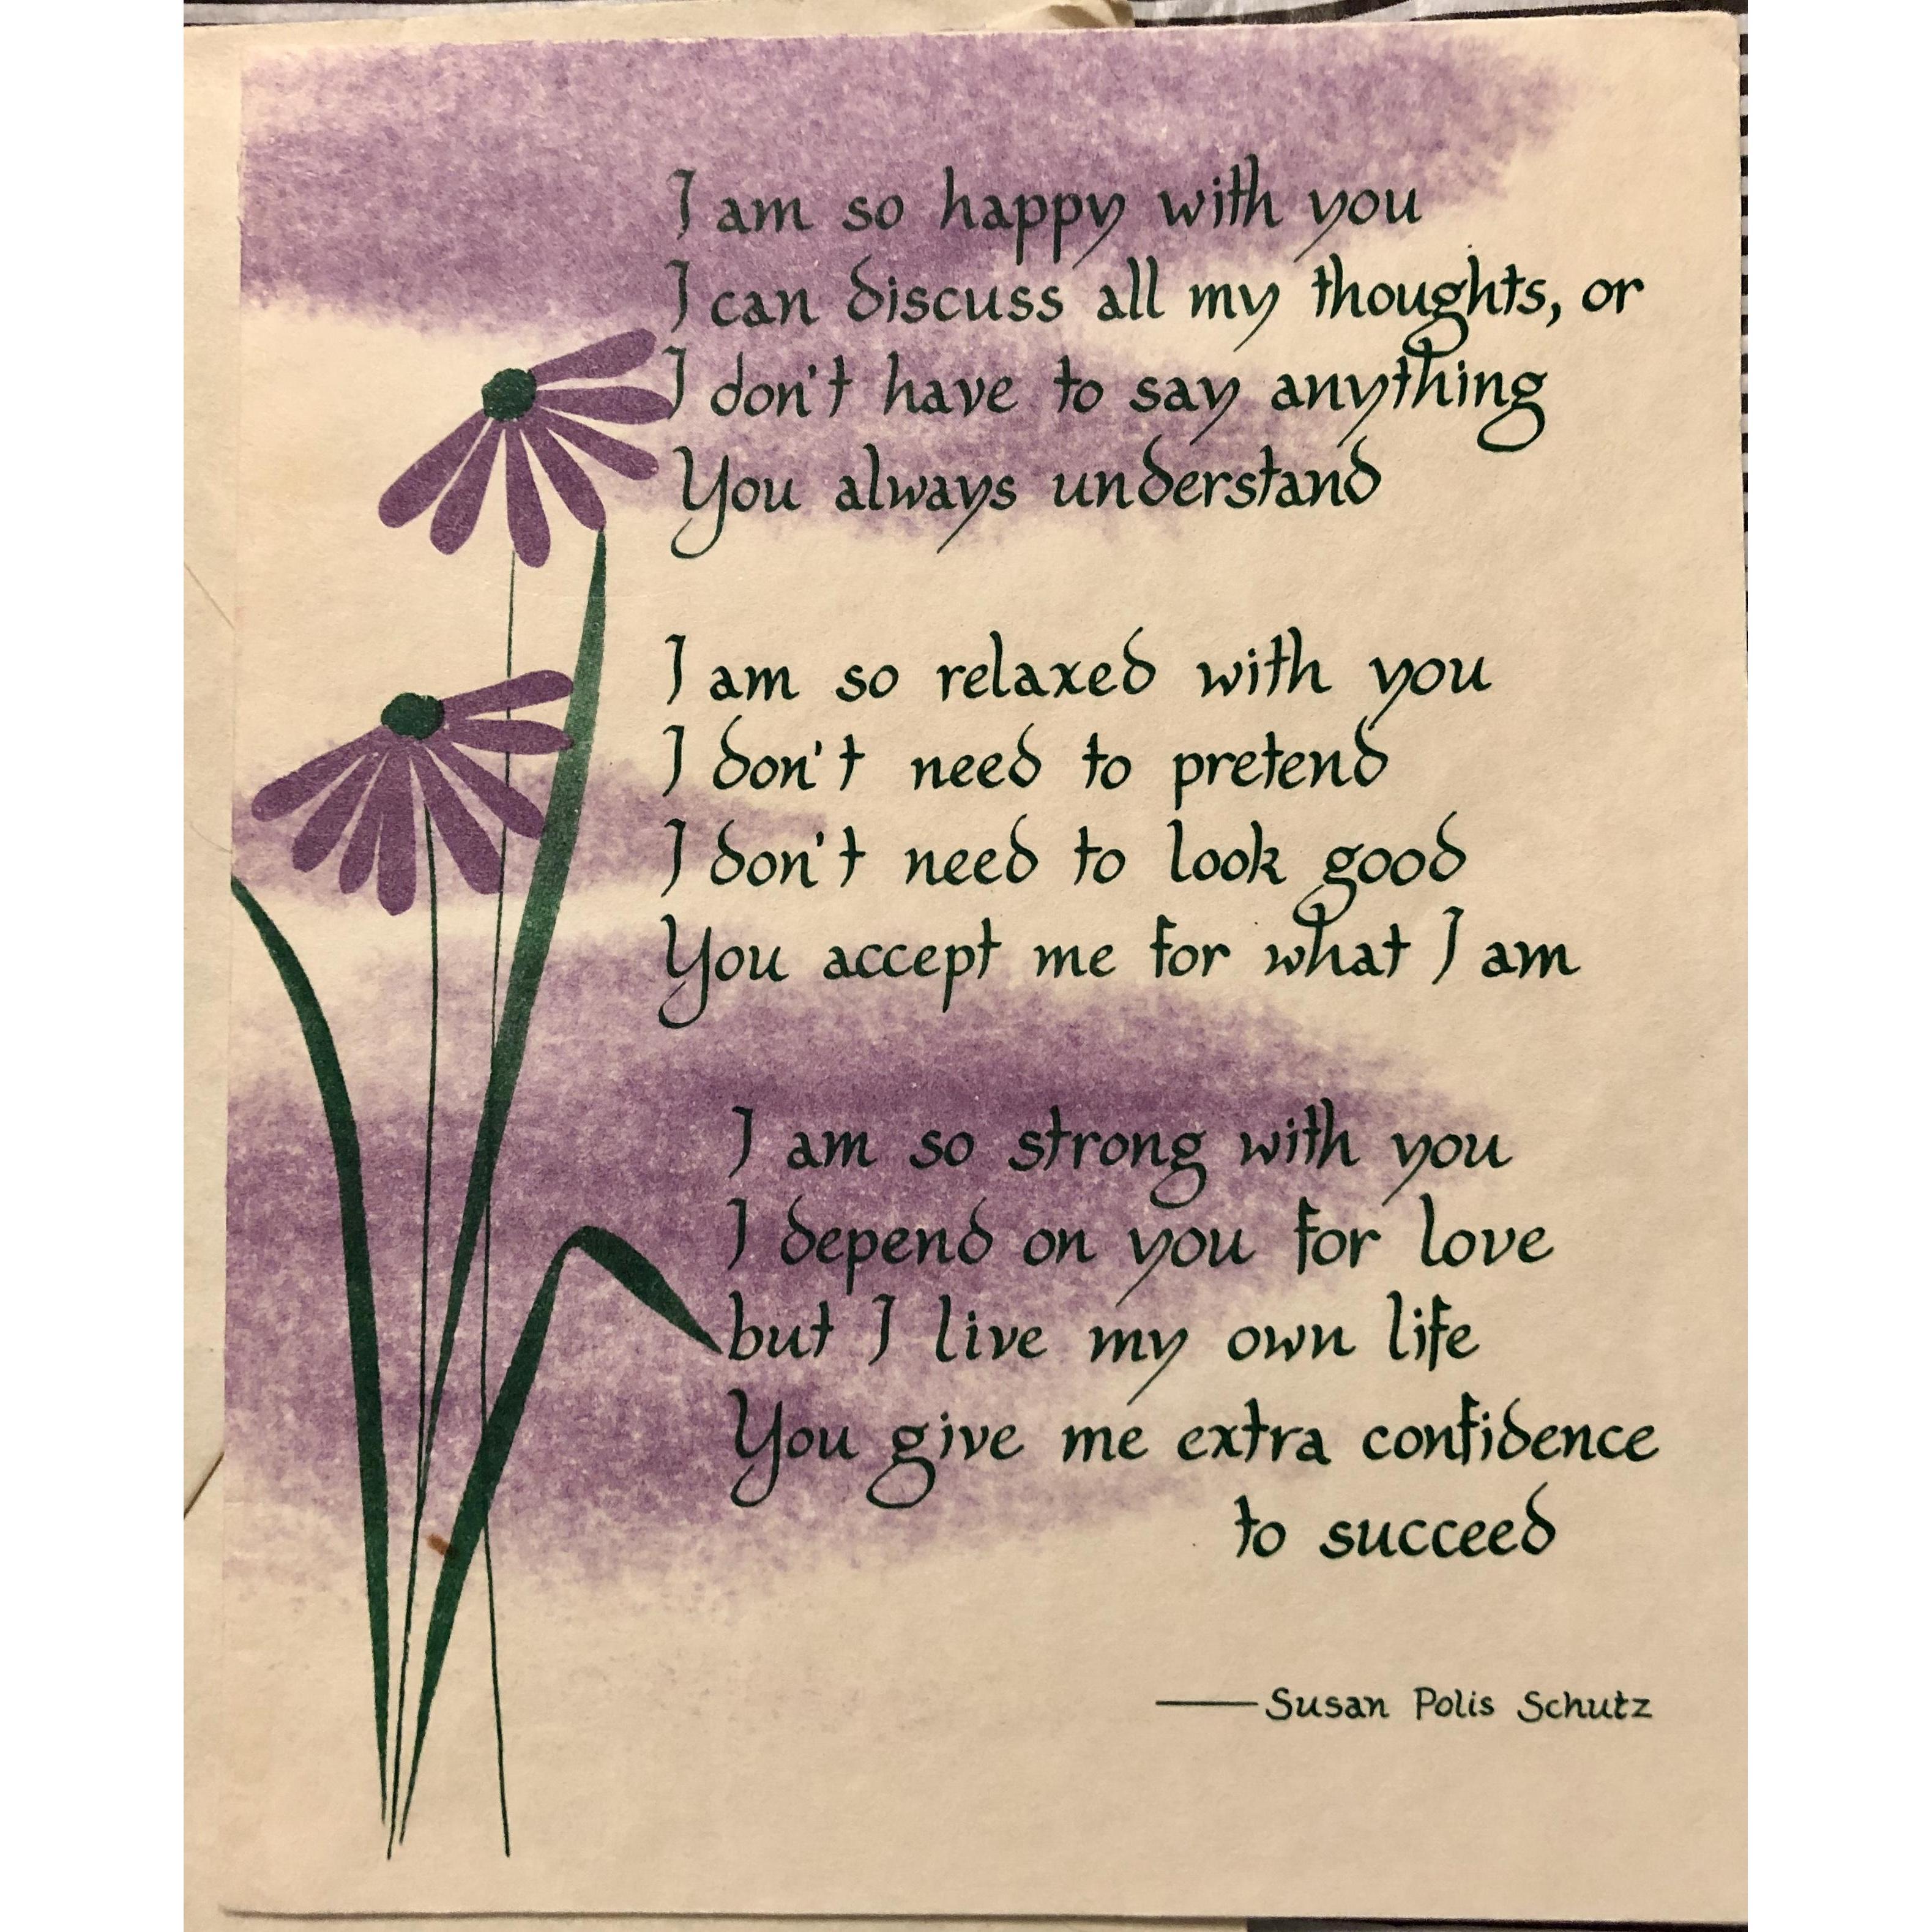 I am so happy with you
I can discuss all my thoughts, or
I don't have to say anything
You always understand
I am so relaxed with you
I don't need to pretend
I don't need to look good
You accept me for what I am
I am so strong with you
I depend on you for love
but I live my own life
You give me extra confidence
to succeed
—Susan Polis Schutz